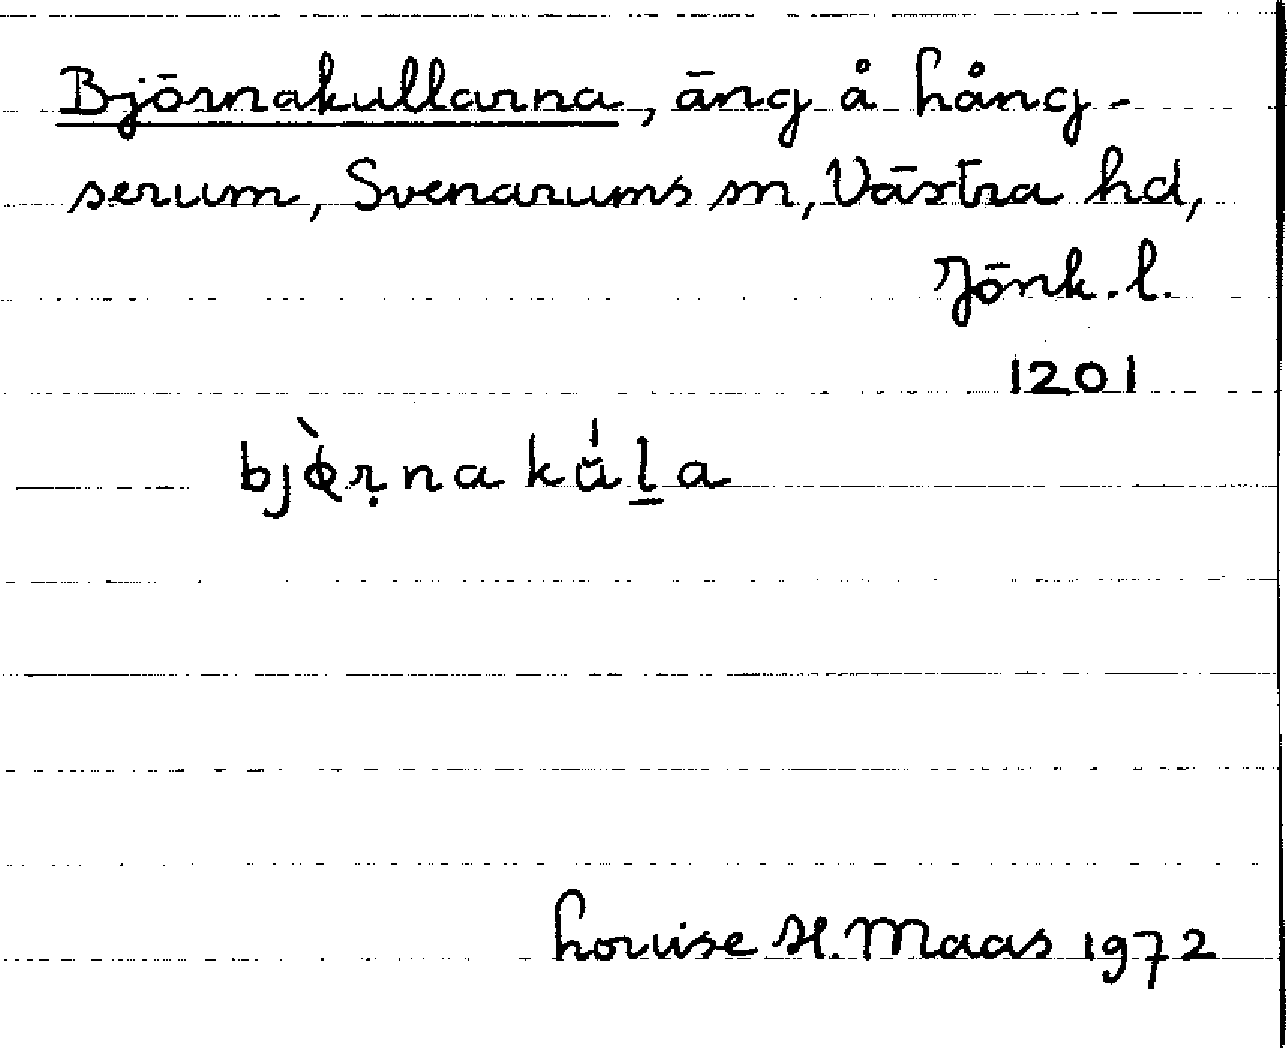 Björnakullarna, äng å Lång-
serum, Svenarums sn, Västra hd,
Jönk. l.
1201
bjɵ̀ṛnakű̆ḻa
Louise H. Maas 1972